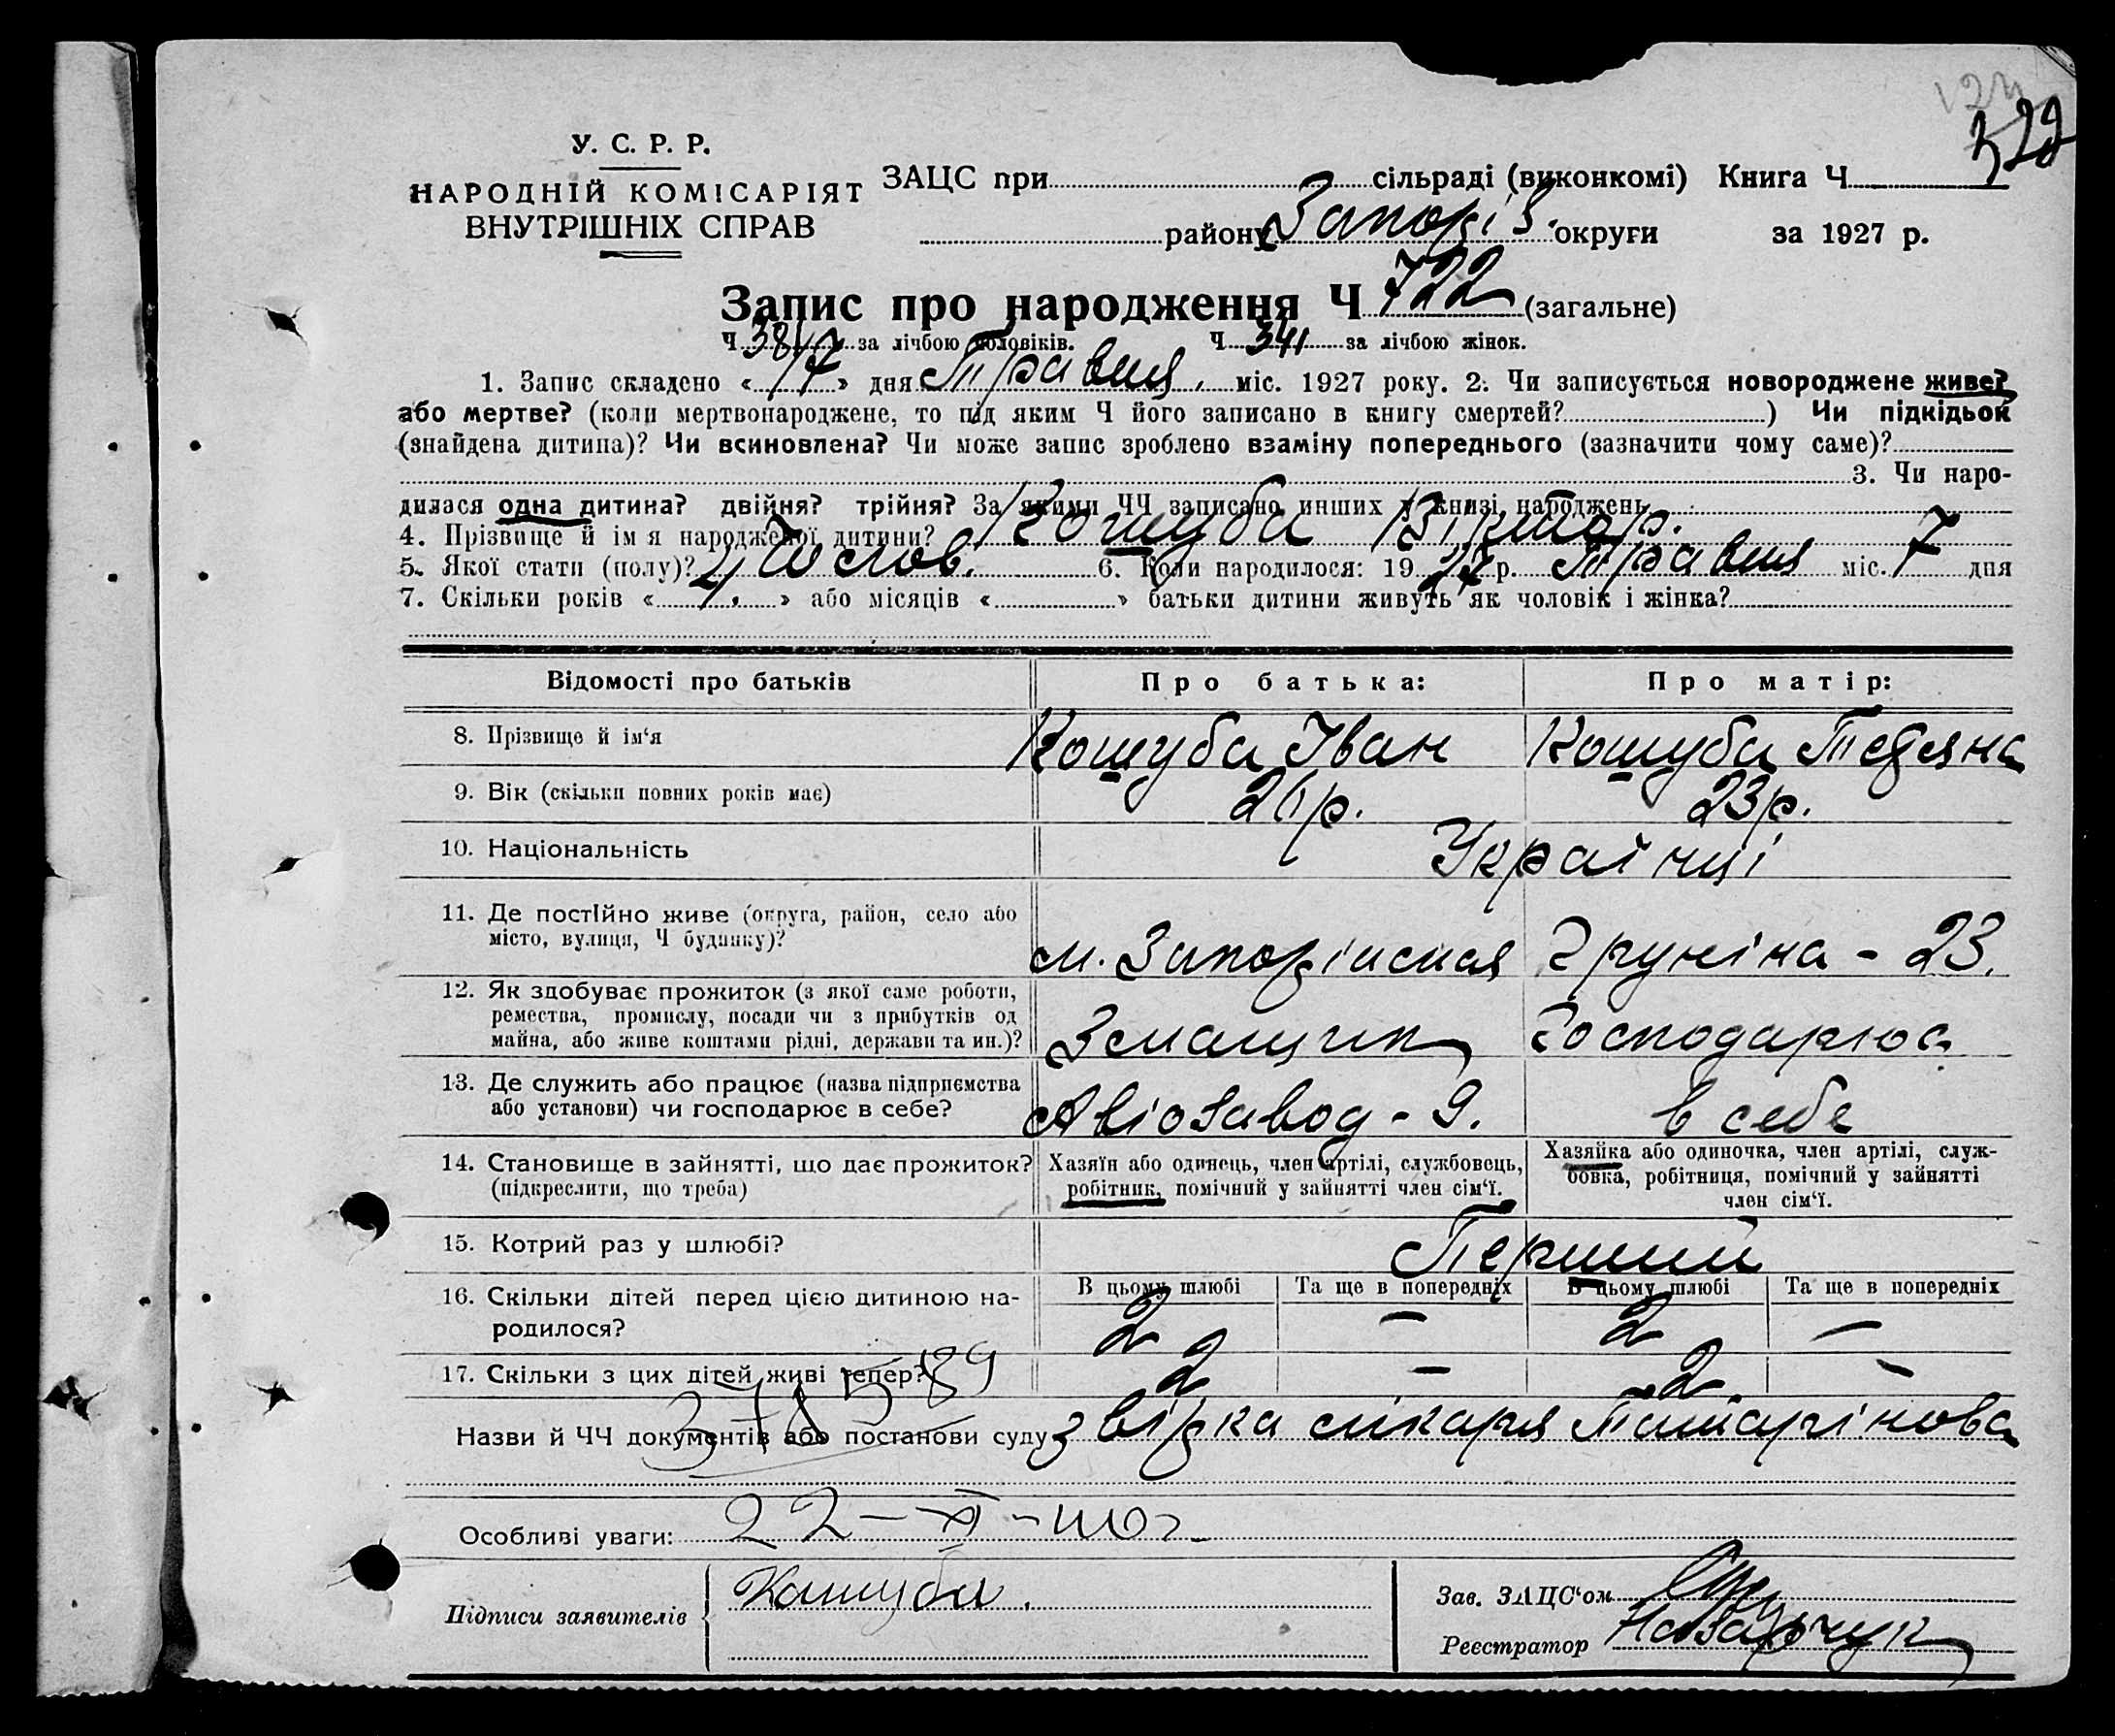 322
У. С. Р. Р.
НАРОДНІЙ КОМІСАРІЯТ
ВНУТРІШНІХ СПРАВ
ЗАЦС при сільраді (виконкомі) Книга Ч
району Запоріз. округи за 1927 р.
Запис про народження Ч 722 (загальне)
Ч за лічбою чоловіків. Ч 341 за лічбою жінок.
1. Запис складено « 17 » дня Травня міс. 1927 року. 2. Чи записується новороджене живе?
або мертве? (коли мертвонароджене, то під яким Ч його записано в книгу смертей? ) Чи підкідьок
(знайдена дитина)? Чи всиновлена? Чи може запис зроблено взаміну попереднього (зазначити чому саме)?
3. Чи наро-
дилася одна дитина? двійня? трійня? За якими ЧЧ записано инших у книзі народжень
4. Прізвище й ім я народженої дитини? Кошуба Віктор.
5. Якої стати (полу)? Чолов. 6. Коли народилося: 19 27 р. Травня міс. 7 дня
7. Скільки років « 4 » або місяців « » батьки дитини живуть як чоловік і жінка?
Відомості про батьків Про батька: Про матір:
8. Прізвище й ім‘я Кошуба Іван Кошуба Тетяна
9. Вік (скільки повних років має) 26 р. 23 р.
10. Національність Українці
11. Де постійно живе (округа, район, село або
місто, вулиця, Ч будинку)? м. Запоріжжя 23.
12. Як здобуває прожиток (з якої саме роботи,
ремества, промислу, посади чи з прибутків од
майна, або живе коштами рідні, держави та ин.)? Змащик Господарює
13. Де служить або працює (назва підприємства
або установи) чи господарює в себе? Авіозавод - 9. в себе
14. Становище в зайнятті, що дає прожиток?
(підкреслити, що треба)
Хазяїн або одинець, член артілі, службовець,
робітник, помічний у зайнятті член сім‘ї.
Хазяйка або одиночка, член артілі, служ-
бовка, робітниця, помічний у зайнятті
член сім‘ї.
15. Котрий раз у шлюбі? Перший
16. Скільки дітей перед цією дитиною на-
родилося?
В цьому шлюбі Та ще в попередніх В цьому шлюбі Та ще в попередніх
2 — 2 —
17. Скільки з цих дітей живі тепер? 2 — 2 —
Назви й ЧЧ документів або постанови суду
Особливі уваги: 22-
Підписи заявителів Кашуба.
Зав. ЗАЦС‘ом
Реєстратор Назарчук